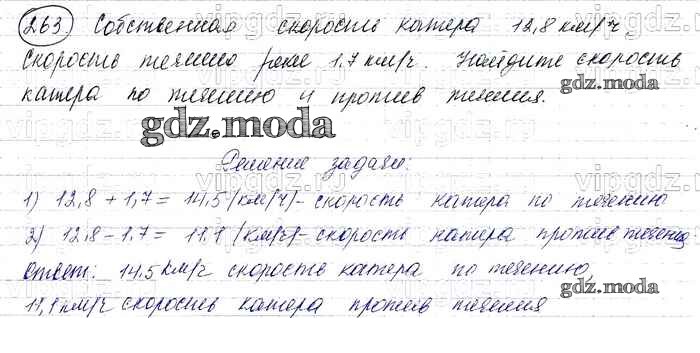 263. Собственная скорость катера 12,8 км/ч,
скорость течению реке 1,7 км/ч. Найдите скорость
gdz.moda
катера по течению и против течения.
gdz.moda
Решение задачи:
1) 12,8 + 1,7 = 14,5 (км/ч) - скорость катера по течению
2) 12,8 - 1,7 = 11,1 (км/ч) - скорость катера против течения
Ответ: 14,5 км/ч скорость катера по течению,
gdz.moda
11,1 км/ч скорость катера против течения